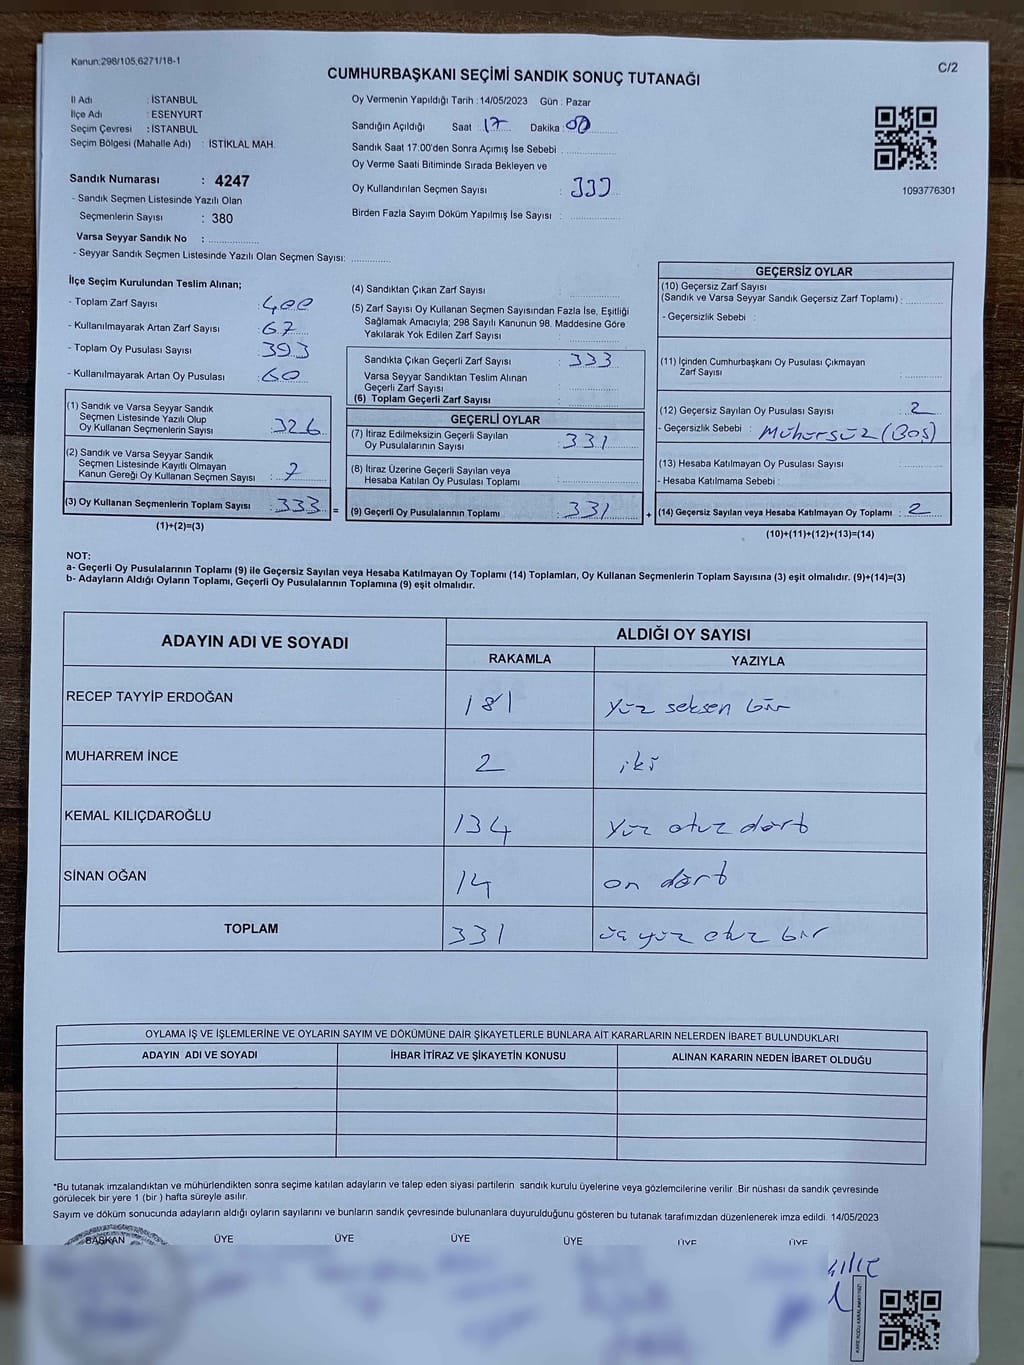 Kanun:298/105,6271/18-1
C/2
CUMHURBAŞKANI SEÇİMİ SANDIK SONUÇ TUTANAĞI
İl Adı : İSTANBUL
İlçe Adı : ESENYURT
Seçim Çevresi : İSTANBUL
Seçim Bölgesi (Mahalle Adı) : İSTİKLAL MAH.
Sandık Numarası : 4247
- Sandık Seçmen Listesinde Yazılı Olan
Seçmenlerin Sayısı : 380
Varsa Seyyar Sandık No :
- Seyyar Sandık Seçmen Listesinde Yazılı Olan Seçmen Sayısı:
Oy Vermenin Yapıldığı Tarih : 14/05/2023 Gün : Pazar
Sandığın Açıldığı Saat : 17 Dakika : 00
Sandık Saat 17:00'den Sonra Açılmış İse Sebebi :
Oy Verme Saati Bitiminde Sırada Bekleyen ve
Oy Kullandırılan Seçmen Sayısı : 333
Birden Fazla Sayım Döküm Yapılmış İse Sayısı :
1093776301
İlçe Seçim Kurulundan Teslim Alınan;
- Toplam Zarf Sayısı : 400
- Kullanılmayarak Artan Zarf Sayısı : 67
- Toplam Oy Pusulası Sayısı : 393
- Kullanılmayarak Artan Oy Pusulası : 60
(1) Sandık ve Varsa Seyyar Sandık
Seçmen Listesinde Yazılı Olup
Oy Kullanan Seçmenlerin Sayısı : 326
(2) Sandık ve Varsa Seyyar Sandık
Seçmen Listesinde Kayıtlı Olmayan
Kanun Gereği Oy Kullanan Seçmen Sayısı : 7
(3) Oy Kullanan Seçmenlerin Toplam Sayısı : 333 =
(1)+(2)=(3)
(4) Sandıktan Çıkan Zarf Sayısı :
(5) Zarf Sayısı Oy Kullanan Seçmen Sayısından Fazla İse, Eşitliği
Sağlamak Amacıyla; 298 Sayılı Kanunun 98. Maddesine Göre
Yakılarak Yok Edilen Zarf Sayısı :
Sandıkta Çıkan Geçerli Zarf Sayısı : 333
Varsa Seyyar Sandıktan Teslim Alınan
Geçerli Zarf Sayısı :
(6) Toplam Geçerli Zarf Sayısı :
GEÇERLİ OYLAR
(7) İtiraz Edilmeksizin Geçerli Sayılan
Oy Pusulalarının Sayısı : 331
(8) İtiraz Üzerine Geçerli Sayılan veya
Hesaba Katılan Oy Pusulası Toplamı :
(9) Geçerli Oy Pusulalarının Toplamı : 331 +
GEÇERSİZ OYLAR
(10) Geçersiz Zarf Sayısı
(Sandık ve Varsa Seyyar Sandık Geçersiz Zarf Toplamı) :
- Geçersizlik Sebebi :
(11) İçinden Cumhurbaşkanı Oy Pusulası Çıkmayan
Zarf Sayısı :
(12) Geçersiz Sayılan Oy Pusulası Sayısı : 2
- Geçersizlik Sebebi : Mühürsüz (Boş)
(13) Hesaba Katılmayan Oy Pusulası Sayısı :
- Hesaba Katılmama Sebebi :
(14) Geçersiz Sayılan veya Hesaba Katılmayan Oy Toplamı : 2
(10)+(11)+(12)+(13)=(14)
NOT:
a- Geçerli Oy Pusulalarının Toplamı (9) ile Geçersiz Sayılan veya Hesaba Katılmayan Oy Toplamı (14) Toplamları, Oy Kullanan Seçmenlerin Toplam Sayısına (3) eşit olmalıdır. (9)+(14)=(3)
b- Adayların Aldığı Oyların Toplamı, Geçerli Oy Pusulalarının Toplamına (9) eşit olmalıdır.
ADAYIN ADI VE SOYADI
ALDIĞI OY SAYISI
RAKAMLA YAZIYLA
RECEP TAYYİP ERDOĞAN 181 yüz seksen bir
MUHARREM İNCE 2 iki
KEMAL KILIÇDAROĞLU 134 yüz otuz dört
SİNAN OĞAN 14 on dört
TOPLAM 331 üç yüz otuz bir
OYLAMA İŞ VE İŞLEMLERİNE VE OYLARIN SAYIM VE DÖKÜMÜNE DAİR ŞİKAYETLERLE BUNLARA AİT KARARLARIN NELERDEN İBARET BULUNDUKLARI
ADAYIN ADI VE SOYADI İHBAR İTİRAZ VE ŞİKAYETİN KONUSU ALINAN KARARIN NEDEN İBARET OLDUĞU
*Bu tutanak imzalandıktan ve mühürlendikten sonra seçime katılan adayların ve talep eden siyasi partilerin sandık kurulu üyelerine veya gözlemcilerine verilir .Bir nüshası da sandık çevresinde
görülecek bir yere 1 (bir ) hafta süreyle asılır.
Sayım ve döküm sonucunda adayların aldığı oyların sayılarını ve bunların sandık çevresinde bulunanlara duyurulduğunu gösteren bu tutanak tarafımızdan düzenlenerek imza edildi. 14/05/2023
BAŞKAN ÜYE ÜYE ÜYE ÜYE ÜYE ÜYE